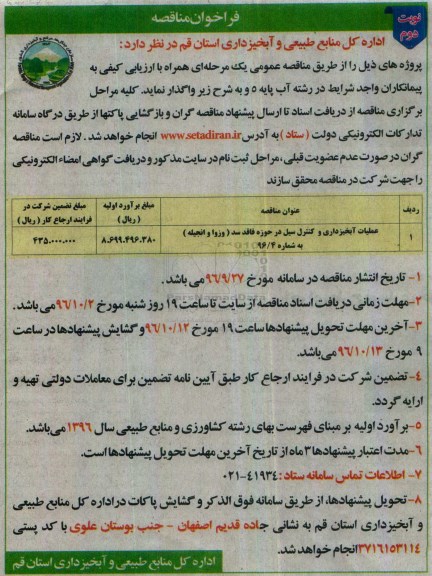 فراخوان مناقصه
نوبت دوم
اداره کل منابع طبیعی و آبخیزداری استان قم در نظر دارد:
پروژه های ذیل را از طریق مناقصه عمومی یک مرحله‌ای همراه با ارزیابی کیفی به
پیمانکاران واجد شرایط در رشته آب پایه ۵ و به شرح زیر واگذار نماید. کلیه مراحل
برگزاری مناقصه از دریافت اسناد تا ارسال پیشنهاد مناقصه گران و بازگشایی پاکتها از طریق درگاه سامانه
تدارکات الکترونیکی دولت ( ستاد ) به آدرس www.setadiran.ir انجام خواهد شد . لازم است مناقصه
گران در صورت عدم عضویت قبلی، مراحل ثبت نام در سایت مذکور و دریافت گواهی امضاء الکترونیکی
را جهت شرکت در مناقصه محقق سازند
ردیف عنوان مناقصه مبلغ برآورد اولیه ( ریال ) مبلغ تضمین شرکت در فرایند ارجاع کار ( ریال )
۱ عملیات آبخیزداری و کنترل سیل در حوزه فاقد سد ( وزوا و انجیله ) به شماره ۹۶/۴ ۸.۶۹۹.۴۹۶.۳۸۰ ۴۳۵.۰۰۰.۰۰۰
۱- تاریخ انتشار مناقصه در سامانه مورخ ۹۶/۹/۲۷ می باشد .
۲-مهلت زمانی دریافت اسناد مناقصه از سایت تا ساعت ۱۹ روز شنبه مورخ ۹۶/۱۰/۲ می باشد.
۳-آخرین مهلت تحویل پیشنهادها ساعت ۱۹ مورخ ۹۶/۱۰/۱۲ و گشایش پیشنهادها در ساعت
۹ مورخ ۹۶/۱۰/۱۳ می‌باشد.
۴-تضمین شرکت در فرایند ارجاع کار طبق آیین نامه تضمین برای معاملات دولتی تهیه و
ارایه گردد.
۵-برآورد اولیه بر مبنای فهرست بهای رشته کشاورزی و منابع طبیعی سال ۱۳۹۶ می‌باشد.
۶-مدت اعتبار پیشنهادها ۳ ماه از تاریخ آخرین مهلت تحویل پیشنهادها است.
۷- اطلاعات تماس سامانه ستاد : ۴۱۹۳۴-۰۲۱
۸-تحویل پیشنهادها، از طریق سامانه فوق الذکر و گشایش پاکات در اداره کل منابع طبیعی
و آبخیزداری استان قم به نشانی جاده قدیم اصفهان - جنب بوستان علوی با کد پستی
۳۷۱۶۱۵۳۱۱۴ انجام خواهد شد.
اداره کل منابع طبیعی و آبخیزداری استان قم